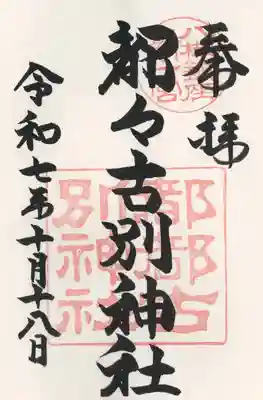 奉拝
都々古別神社
令和七年十月十八日
都都古
別神社